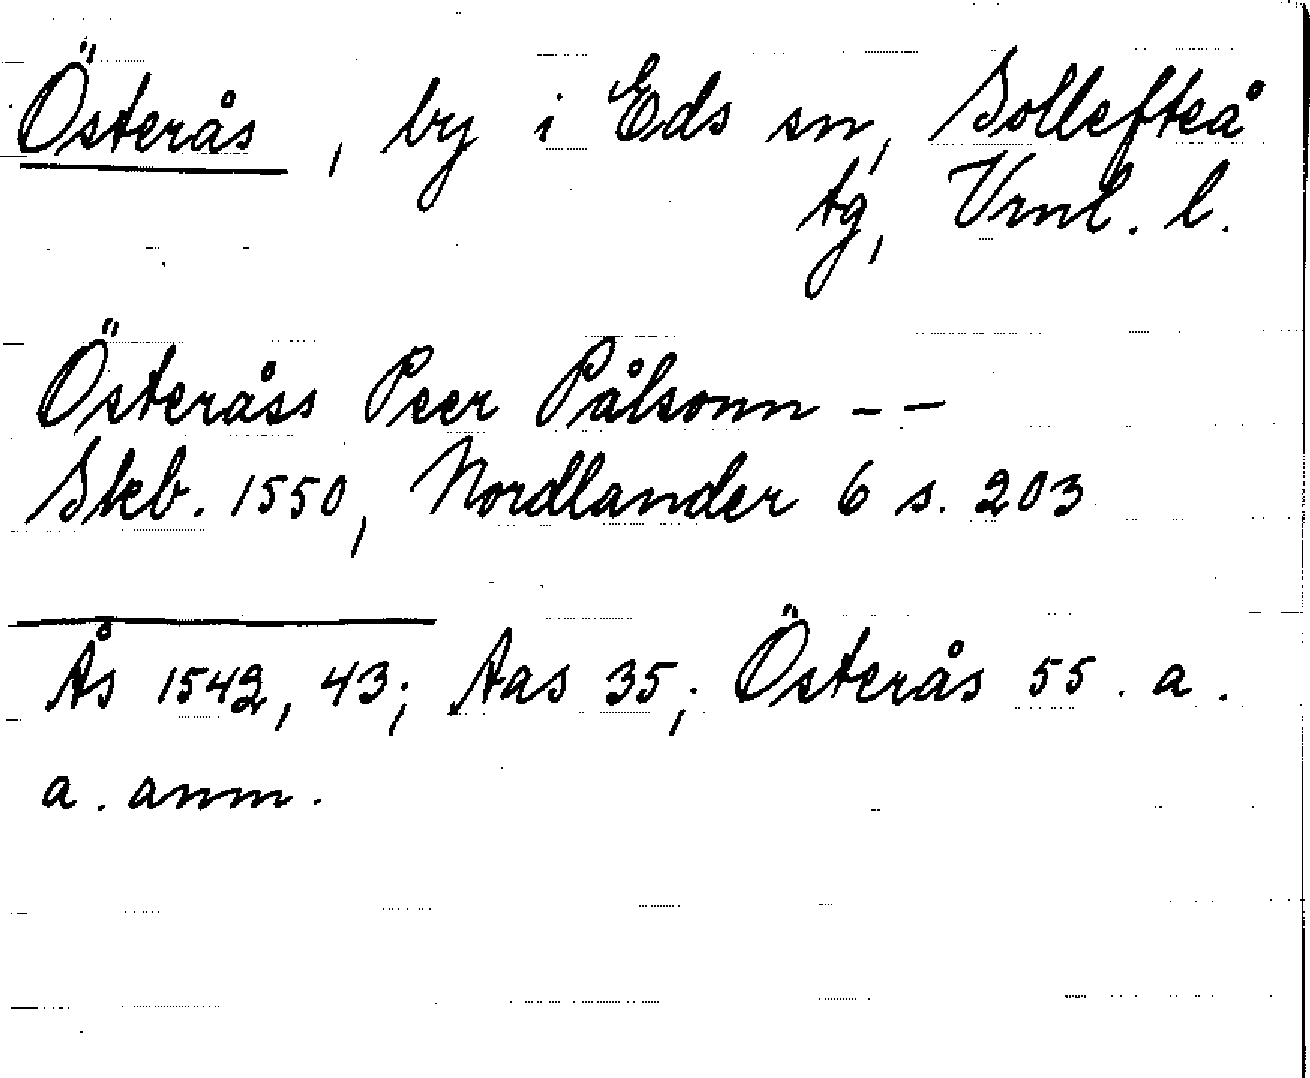 Österås, by i Eds sn, Sollefteå
tg, Vrnl. l.
Österåss Peer Pålsonn - -
Skb. 1550, Nordlander 6 s. 203
Ås 1542, 43; Aas 35; Österås 55. a.
a. anm.